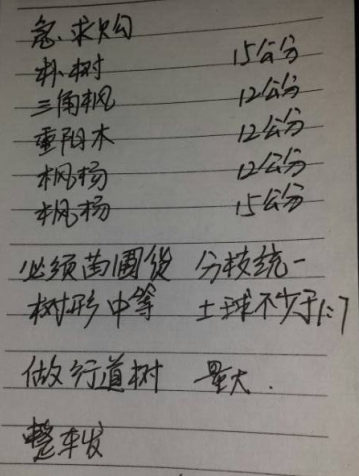 急求购
朴树 15公分
三角枫 12公分
重阳木 12公分
枫杨 12公分
枫杨 15公分
必须苗圃货 分枝统一
树形中等 土球不少于1:7
做行道树 量大.
整车发